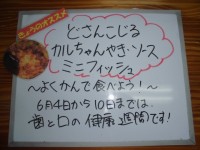 きょうのオススメ
どさんこじる
カルちゃんやき・ソース
ミニフィッシュ
～よくかんで食べよう！～
6月4日から10日までは
歯と口の健康週間です!